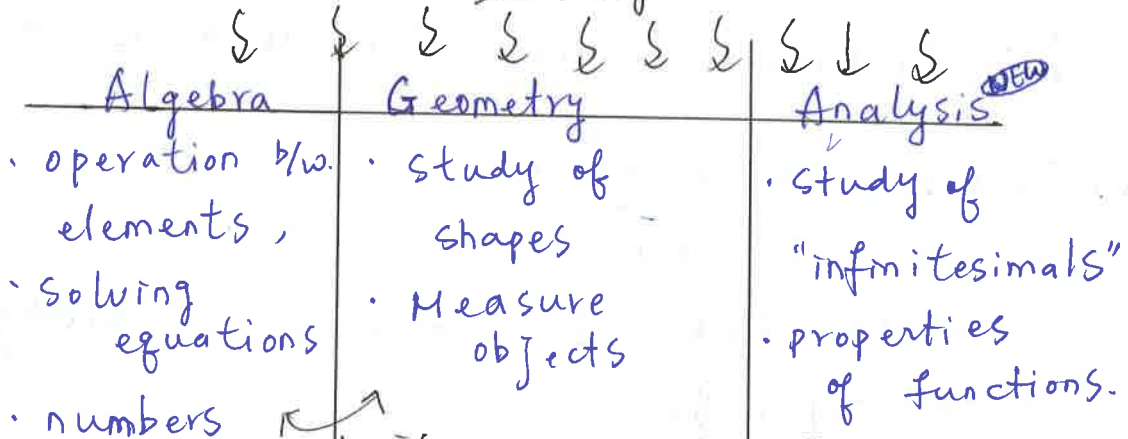 Algebra
Geometry
Analysis
NEW
· operation b/w.
elements,
· solving
equations
· numbers
· study of
shapes
· Measure
objects
· study of
"infinitesimals"
· properties
of functions.